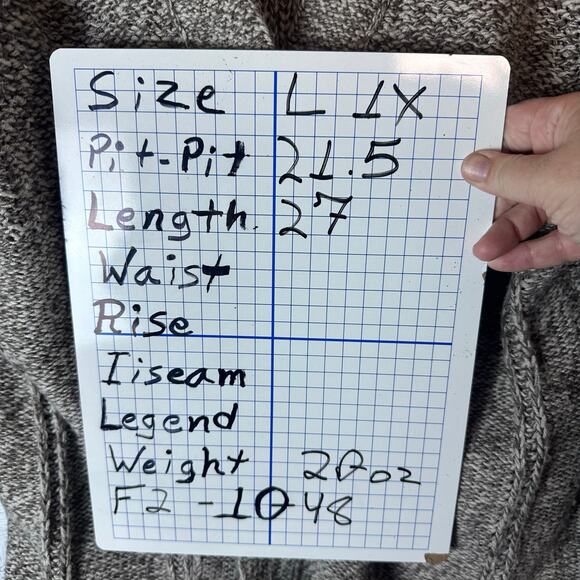 Size L 1X
Pit-Pit 21.5
Length. 27
Waist
Rise
Iiseam
Legend
Weight 20oz
F2 -10-48